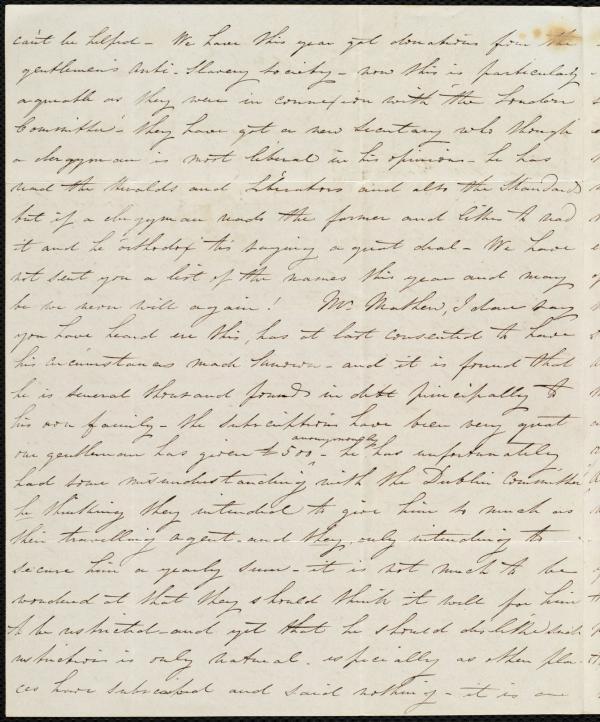 cant be helped - We have this year got donations from the
gentlemen's Anti-Slavery Society - now this is particularly
agreeable as they were in connexion with the London
Committee - they have got a new Secretary who though
a clergyman is most liberal in his opinions - he has
read the Heralds and Liberators and also the Standard
but if a clergyman reads the former and likes to read
it and he orthodox tis saying a great deal - We have
not sent you a list of the names this year and may
be we never will again! Mr Mathew, I dare say
you have heard ere this, has at last consented to have
his circumstances made known - and it is found that
he is several thousand pounds in debt principally to
his own family - the subscriptions have been very great
one gentleman has given £500 anonymously - he has unfortunately
had some misunderstanding with the Dublin Committee
he thinking they intended to give him so much as
their travelling agent - and they, only intending to
secure him a yearly sum - it is not much to be
wondered at that they should think it well for him
to be restricted - and yet that he should dislike such
restrictions is only natural. especially as other pla-
ces have subscribed and said nothing - it is one